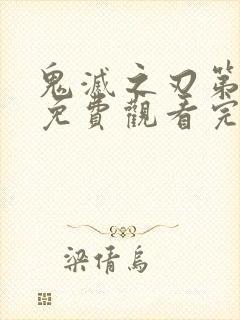 鬼滅之刃第
免費觀看完
梁倩烏